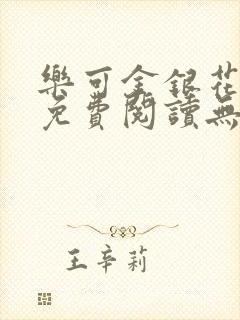 樂可金銀花
免費閱讀無
王辛莉